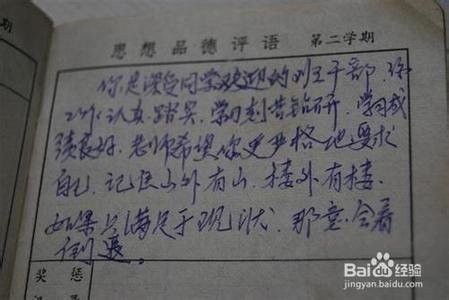 思想品德评语 第二学期
你是深受同学欢迎的 干部
工作认真、踏实,学习刻苦钻研,学习成
绩良好。老师希望你更严格地要求
自己,记住山外有山,楼外有楼,
如果只满足于现状,那 会
倒退。
奖惩
Baidu经验
jingyan.baidu.com